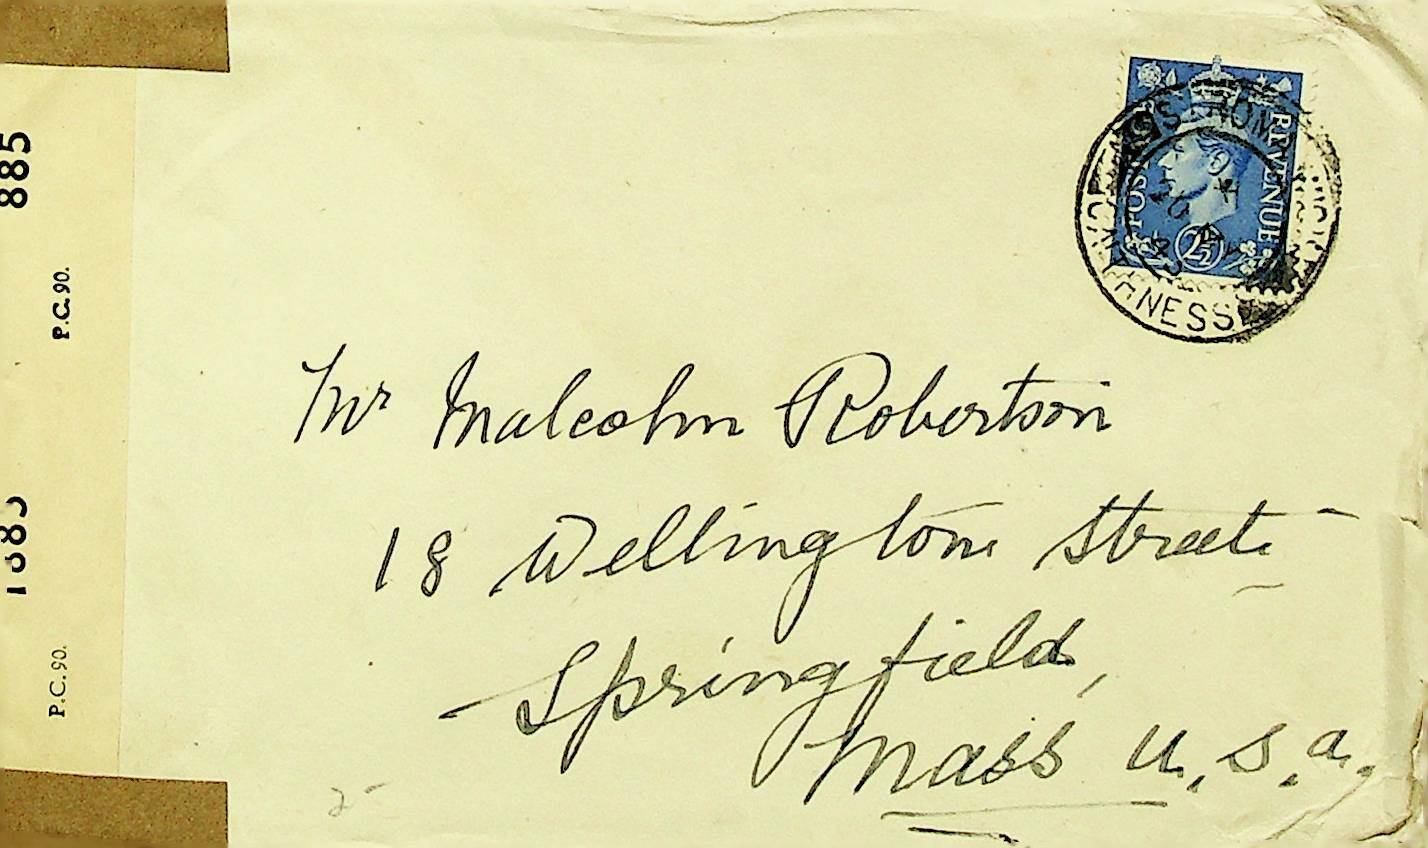 885
P.C. 90.
P.C. 90.
POSTAGE
REVENUE
2½
STROMNESS
Mr Malcolm Robertson
18 Wellington Street
Springfield,
Mass U.S.A.